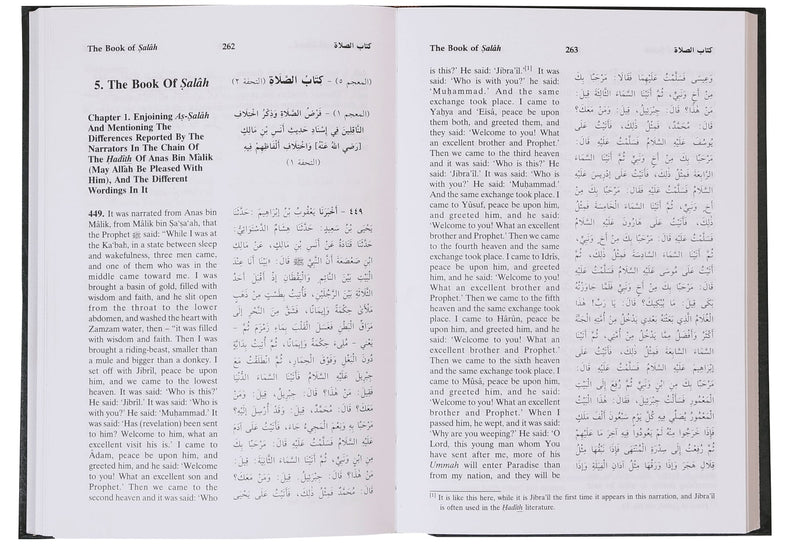 The Book of Ṣalâh 262 كتاب الصلاة
5. The Book Of Ṣalâh
(المعجم ٥) – كتاب الصَّلاة (التحفة ٢)
Chapter 1. Enjoining Aṣ-Ṣalâh
And Mentioning The
Differences Reported By The
Narrators In The Chain Of
The Hadîth Of Anas Bin Mâlik
(May Allâh Be Pleased With
Him), And The Different
Wordings In It
(المعجم ١) – فَرْضُ الصَّلَاةِ وَذِكْرُ اخْتِلَافِ
النَّاقِلِينَ فِي إِسْنَادِ حَدِيثِ أَنَسِ بْنِ مَالِكٍ
[رَضِيَ اللهُ عَنْهُ] وَاخْتِلَافِ أَلْفَاظِهِمْ فِيهِ
(التحفة ١)
449. It was narrated from Anas bin
Mâlik, from Mâlik bin Ṣa'ṣa'ah, that
the Prophet ﷺ said: "While I was at
the Ka'bah, in a state between sleep
and wakefulness, three men came,
and one of them who was in the
middle came toward me. I was
brought a basin of gold, filled with
wisdom and faith, and he slit open
from the throat to the lower
abdomen, and washed the heart with
Zamzam water, then – "it was filled
with wisdom and faith. Then I was
brought a riding-beast, smaller than
a mule and bigger than a donkey. I
set off with Jibrîl, peace be upon
him, and we came to the lowest
heaven. It was said: 'Who is this?'
He said: 'Jibrîl.' It was said: 'Who is
with you?' He said: 'Muḥammad.' It
was said: 'Has (revelation) been sent
to him? Welcome to him, what an
excellent visit his is.' I came to
Âdam, peace be upon him, and
greeted him, and he said: 'Welcome
to you! What an excellent son and
Prophet.' Then we came to the
second heaven and it was said: 'Who
٤٤٩ – أَخْبَرَنَا يَعْقُوبُ بْنُ إِبْرَاهِيمَ: حَدَّثَنَا
يَحْيَى بْنُ سَعِيدٍ: حَدَّثَنَا هِشَامٌ الدَّسْتَوَائِيُّ:
حَدَّثَنَا قَتَادَةُ عَنْ أَنَسِ بْنِ مَالِكٍ، عَنْ مَالِكِ
ابْنِ صَعْصَعَةَ أَنَّ النَّبِيَّ ﷺ قَالَ: «بَيْنَا أَنَا عِنْدَ
الْبَيْتِ بَيْنَ النَّائِمِ وَالْيَقْظَانِ إِذْ أَقْبَلَ أَحَدُ
الثَّلَاثَةِ بَيْنَ الرَّجُلَيْنِ، فَأُتِيتُ بِطَسْتٍ مِنْ ذَهَبٍ
مَلْآنَ حِكْمَةً وَإِيمَانًا، فَشَقَّ مِنَ النَّحْرِ إِلَى
مَرَاقِّ الْبَطْنِ فَغَسَلَ الْقَلْبَ بِمَاءِ زَمْزَمَ ثُمَّ –
مُلِئَ حِكْمَةً وَإِيمَانًا، ثُمَّ أُتِيتُ بِدَابَّةٍ
دُونَ الْبَغْلِ وَفَوْقَ الْحِمَارِ، ثُمَّ انْطَلَقْتُ مَعَ
جِبْرِيلَ عَلَيْهِ السَّلَامُ فَأَتَيْنَا السَّمَاءَ الدُّنْيَا
فَقِيلَ: مَنْ هٰذَا؟ قَالَ: جِبْرِيلُ. قِيلَ: وَمَنْ
مَعَكَ؟ قَالَ: مُحَمَّدٌ، قِيلَ: وَقَدْ أُرْسِلَ إِلَيْهِ؟
مَرْحَبًا بِهِ وَنِعْمَ الْمَجِيءُ جَاءَ، فَأَتَيْتُ عَلَى
آدَمَ عَلَيْهِ السَّلَامُ فَسَلَّمْتُ عَلَيْهِ قَالَ: مَرْحَبًا بِكَ
مِنِ ابْنٍ وَنَبِيٍّ، ثُمَّ أَتَيْنَا السَّمَاءَ الثَّانِيَةَ: قِيلَ:
مَنْ هٰذَا؟ قَالَ: جِبْرِيلُ، قِيلَ: وَمَنْ مَعَكَ؟
قَالَ: مُحَمَّدٌ فَمِثْلُ ذٰلِكَ، فَأَتَيْتُ عَلَى يَحْيَى
The Book of Ṣalâh 263 كتاب الصلاة
is this?' He said: 'Jibra'îl.'[1] It was
said: 'Who is with you?' He said:
'Muḥammad.' And the same
exchange took place. I came to
Yaḥya and 'Eisâ, peace be upon
them both, and greeted them, and
they said: 'Welcome to you! What
an excellent brother and Prophet.'
Then we came to the third heaven
and it was said: 'Who is this?' He
said: 'Jibra'îl.' It was said: 'Who is
with you?' He said: 'Muḥammad.'
And the same exchange took place. I
came to Yûsuf, peace be upon him,
and greeted him, and he said:
'Welcome to you! What an excellent
brother and Prophet.' Then we came
to the fourth heaven and the same
exchange took place. I came to Idrîs,
peace be upon him, and greeted
him, and he said: 'Welcome to you!
What an excellent brother and
Prophet.' Then we came to the fifth
heaven and the same exchange took
place. I came to Hârûn, peace be
upon him, and greeted him, and he
said: 'Welcome to you! What an
excellent brother and Prophet.'
Then we came to the sixth heaven
and the same exchange took place. I
came to Mûsâ, peace be upon him,
and greeted him, and he said:
'Welcome to you! What an excellent
brother and Prophet.' When I
passed him, he wept, and it was said:
'Why are you weeping?' He said: 'O
Lord, this young man whom You
have sent after me, more of his
Ummah will enter Paradise than
from my nation, and they will be
وَعِيسَى فَسَلَّمْتُ عَلَيْهِمَا فَقَالَا: مَرْحَبًا بِكَ
مِنْ أَخٍ وَنَبِيٍّ، ثُمَّ أَتَيْنَا السَّمَاءَ الثَّالِثَةَ قِيلَ:
مَنْ هٰذَا؟ قَالَ: جِبْرِيلُ، قِيلَ: وَمَنْ مَعَكَ؟
قَالَ: مُحَمَّدٌ، فَمِثْلُ ذٰلِكَ، فَأَتَيْتُ عَلَى
يُوسُفَ عَلَيْهِ السَّلَامُ فَسَلَّمْتُ عَلَيْهِ قَالَ:
مَرْحَبًا بِكَ مِنْ أَخٍ وَنَبِيٍّ ثُمَّ أَتَيْنَا السَّمَاءَ
الرَّابِعَةَ فَمِثْلُ ذٰلِكَ، فَأَتَيْتُ عَلَى إِدْرِيسَ عَلَيْهِ
السَّلَامُ فَسَلَّمْتُ عَلَيْهِ قَالَ: مَرْحَبًا بِكَ مِنْ
أَخٍ وَنَبِيٍّ ثُمَّ أَتَيْنَا السَّمَاءَ الْخَامِسَةَ فَمِثْلُ
ذٰلِكَ، فَأَتَيْتُ عَلَى هَارُونَ عَلَيْهِ السَّلَامُ
فَسَلَّمْتُ عَلَيْهِ قَالَ: مَرْحَبًا بِكَ مِنْ أَخٍ وَنَبِيٍّ،
ثُمَّ أَتَيْنَا السَّمَاءَ السَّادِسَةَ فَمِثْلُ ذٰلِكَ، ثُمَّ
أَتَيْتُ عَلَى مُوسَى عَلَيْهِ السَّلَامُ فَسَلَّمْتُ عَلَيْهِ
قَالَ: مَرْحَبًا بِكَ مِنْ أَخٍ وَنَبِيٍّ فَلَمَّا جَاوَزْتُهُ
بَكَى قِيلَ: مَا يُبْكِيكَ؟ قَالَ: يَا رَبِّ! هٰذَا
الْغُلَامُ الَّذِي بَعَثْتَهُ بَعْدِي يَدْخُلُ مِنْ أُمَّتِهِ الْجَنَّةَ
أَكْثَرُ وَأَفْضَلُ مِمَّا يَدْخُلُ مِنْ أُمَّتِي، ثُمَّ أَتَيْنَا
السَّمَاءَ السَّابِعَةَ فَمِثْلُ ذٰلِكَ، فَأَتَيْتُ عَلَى
إِبْرَاهِيمَ عَلَيْهِ السَّلَامُ فَسَلَّمْتُ عَلَيْهِ قَالَ:
مَرْحَبًا بِكَ مِنِ ابْنٍ وَنَبِيٍّ ثُمَّ رُفِعَ لِيَ الْبَيْتُ
الْمَعْمُورُ فَسَأَلْتُ جِبْرِيلَ، فَقَالَ: هٰذَا الْبَيْتُ
الْمَعْمُورُ يُصَلِّي فِيهِ كُلَّ يَوْمٍ سَبْعُونَ أَلْفَ مَلَكٍ
فَإِذَا خَرَجُوا مِنْهُ لَمْ يَعُودُوا فِيهِ آخِرَ مَا عَلَيْهِمْ
ثُمَّ رُفِعَتْ لِي سِدْرَةُ الْمُنْتَهَى فَإِذَا نَبْقُهَا مِثْلُ
قِلَالِ هَجَرَ وَإِذَا وَرَقُهَا مِثْلُ آذَانِ الْفِيَلَةِ وَإِذَا
[1] It is like this here, while it is Jibra'îl the first time it appears in this narration, and Jibra'îl
is often used in the Hadîth literature.